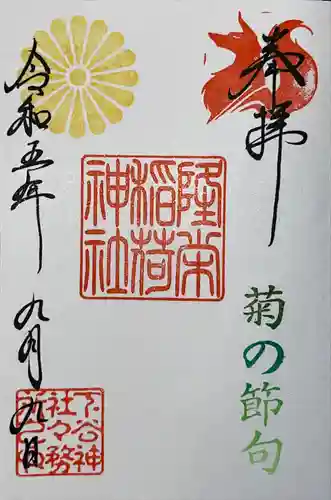 奉拝
菊の節句
隆栄
稲荷
神社
令和五年
九月九日
下谷神
社々務
所之印